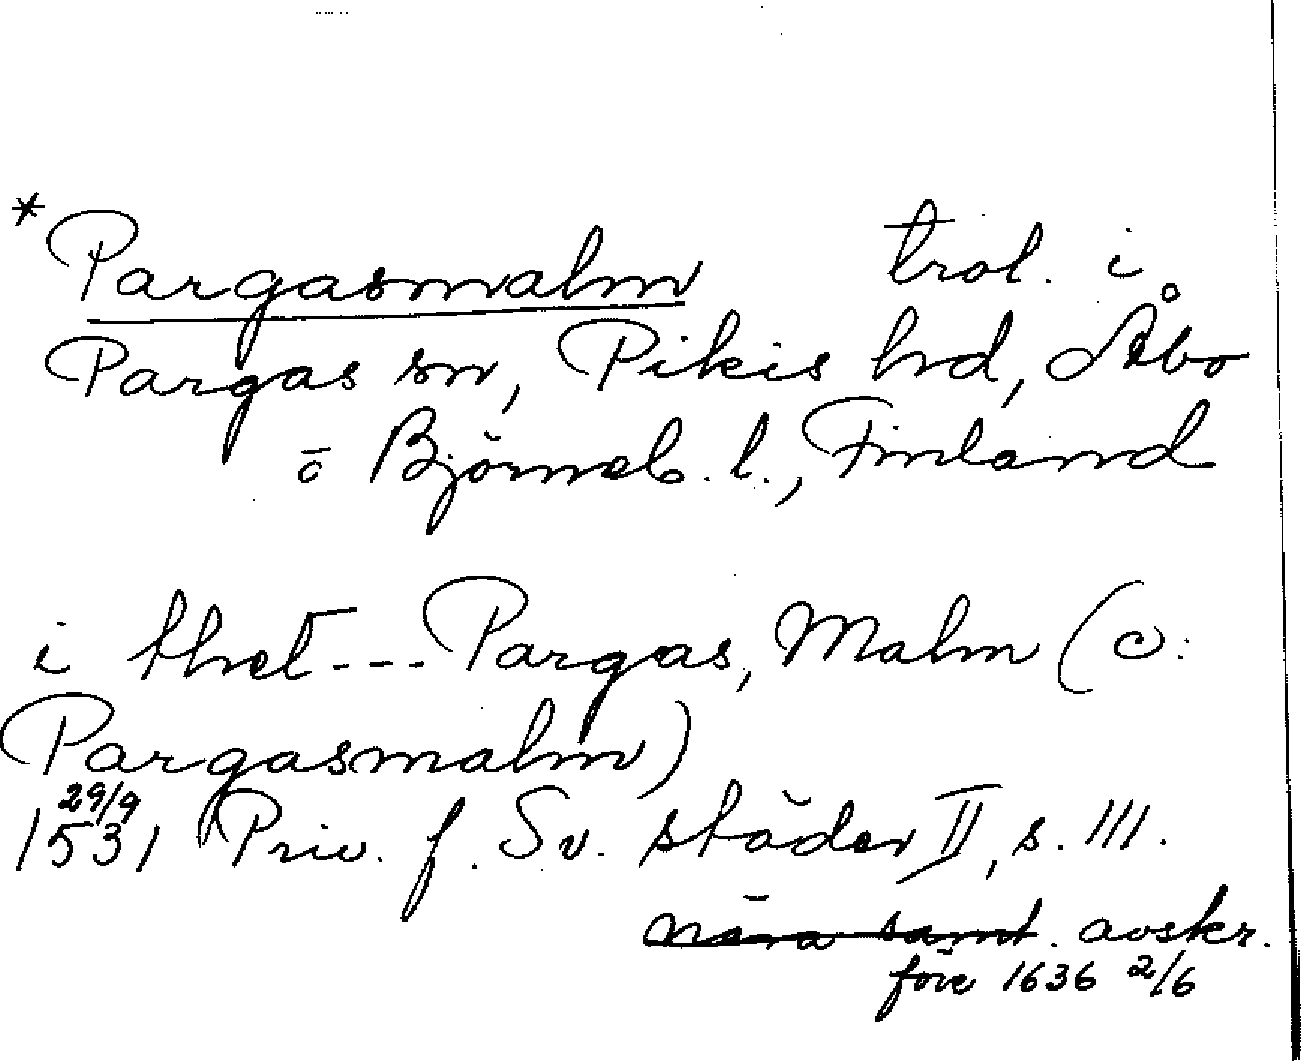 * Pargasmalm trol. i
Pargas sn, Pikis hd, Åbo
o Björneb. l., Finland
i thet --- Pargas, Malm (c:
Pargasmalm)
29/9
1531 Priv. f. Sv. städer II, s. 111.
nära samt. avskr.
före 1636 2/6